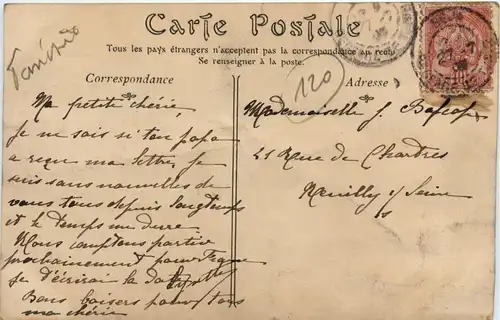 Carte Postale
Tous les pays étrangers n'acceptent pas la correspondance au recto
Se renseigner à la poste.
Correspondance
Adresse
120
Ma petite chérie,
je ne sais si ton papa
a reçu ma lettre, je
suis sans nouvelles de
vous tous depuis longtemps
et le temps me dure.
Nous comptons partir
prochainement pour
je t'écrirai la date
Bons baisers pour tous
ma chérie
Mademoiselle J.
21 Rue de Chartres
Neuilly s/ Seine